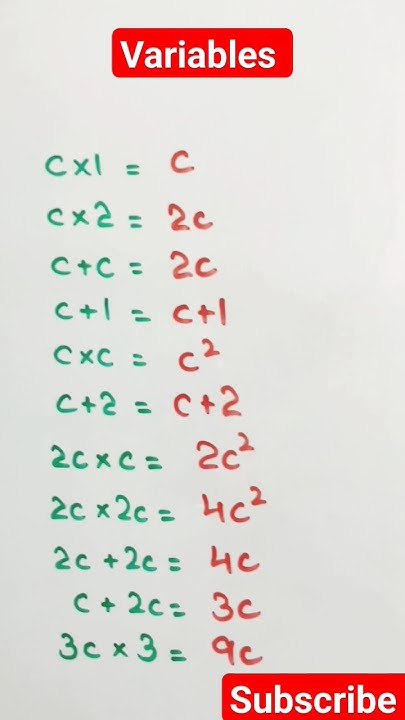 Variables
c×1 = c
c×2 = 2c
c+c = 2c
c+1 = c+1
c×c = c²
c+2 = c+2
2c×c = 2c²
2c×2c = 4c²
2c+2c = 4c
c+2c = 3c
3c×3 = 9c
Subscribe